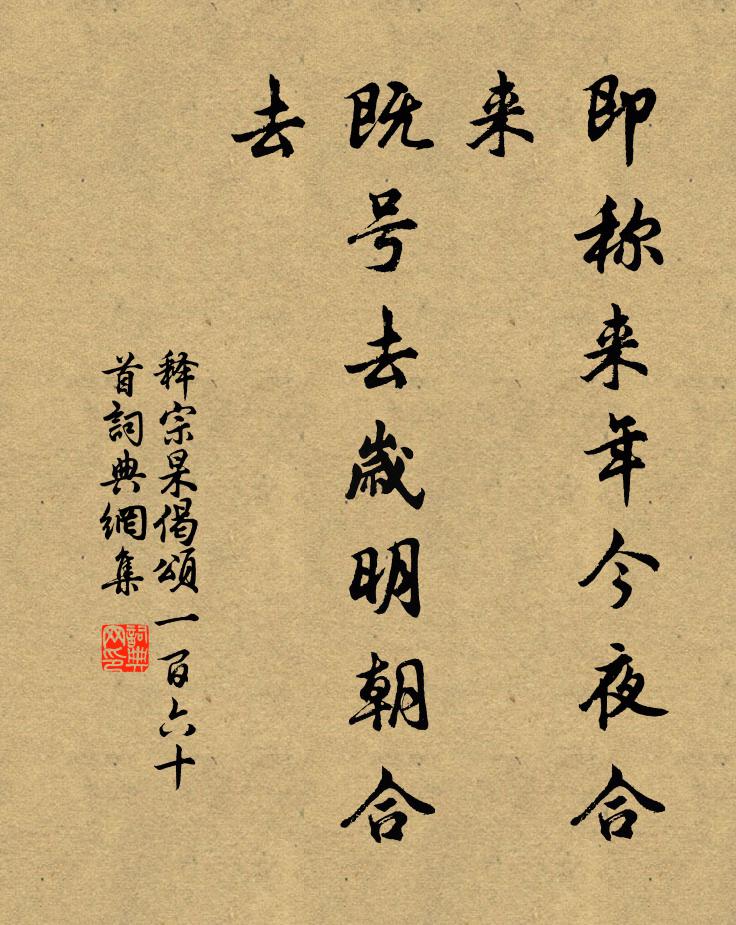 即称来年今夜合
来
既号去歲明朝合
去
释宗杲偈頌一百六十
首詞典網集
詞典
网印